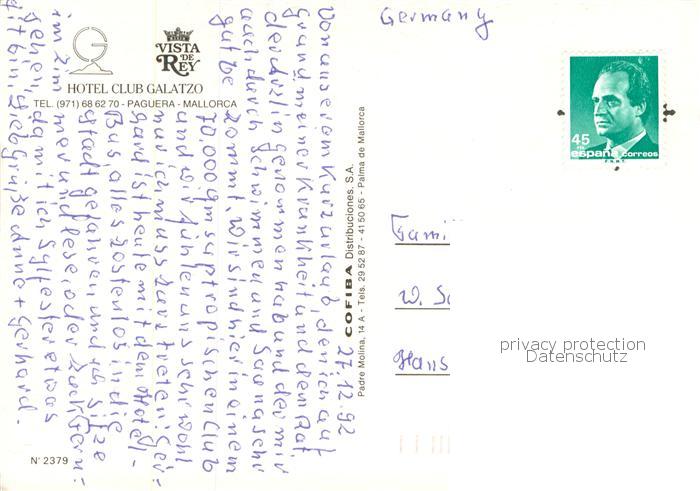 Germany
VISTA
DE
REY
HOTEL CLUB GALATZO
TEL. (971) 68 62 70 - PAGUERA - MALLORCA
45
PTA
españa correos
F.N.M.T.
27.12.92
Von unserem Kurzurlaub, den ich auf
grund meiner Krankheit und dem Rat
der Ärzte in genommen hab und der mir
auch durch schwimmen und Sauna sehr
gut bekommt. Wir sind hier in einem
70.000 qm suptropischen Club
und wir fühlen uns sehr wohl
nur ich muss kurz treten. Ger-
hard ist heute mit dem Hotel-
Bus, alles kostenlos in die
Stadt gefahren und ich sitze
im Zimmer und lese, oder Fern-
gehen, damit ich Sylfester etwas
fit bin. Liebe Grüße Anne + Gerhard.
COFIBA Distribuciones, S.A.
Padre Molina, 14 A - Tels. 29 52 87 - 41 50 65 - Palma de Mallorca
Fami
W. Sc
Hans
privacy protection
Datenschutz
N° 2379